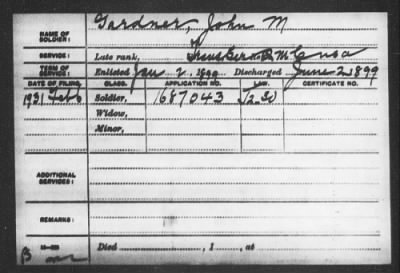 NAME OF SOLDIER: Gardner, John M
SERVICE: Late rank,
TERM OF SERVICE: Enlisted Jan 2, 1899 Discharged June 2 1899
DATE OF FILING. CLASS. APPLICATION NO. LAW. CERTIFICATE NO.
1931 Feb 6 Soldier, 1687043
Widow,
Minor,
ADDITIONAL SERVICES:
REMARKS:
Died , 1 , at